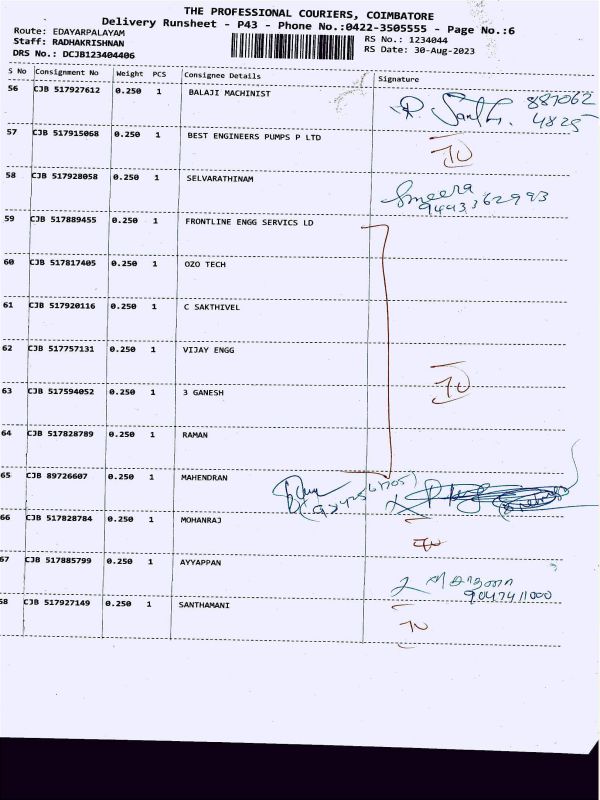 THE PROFESSIONAL COURIERS, COIMBATORE
Delivery Runsheet - P43 - Phone No.:0422-3505555 - Page No.:6
Route: EDAYARPALAYAM
RS No.: 1234044
Staff: RADHAKRISHNAN
RS Date: 30-Aug-2023
DRS No.: DCJB123404406
S No Consignment No Weight PCS Consignee Details Signature
56 CJB 517927612 0.250 1 BALAJI MACHINIST
57 CJB 517915068 0.250 1 BEST ENGINEERS PUMPS P LTD
58 CJB 517928058 0.250 1 SELVARATHINAM
59 CJB 517889455 0.250 1 FRONTLINE ENGG SERVICS LD
60 CJB 517817405 0.250 1 OZO TECH
61 CJB 517920116 0.250 1 C SAKTHIVEL
62 CJB 517757131 0.250 1 VIJAY ENGG
63 CJB 517594052 0.250 1 3 GANESH
64 CJB 517828789 0.250 1 RAMAN
65 CJB 89726607 0.250 1 MAHENDRAN
66 CJB 517828784 0.250 1 MOHANRAJ
67 CJB 517885799 0.250 1 AYYAPPAN
9047411000
68 CJB 517927149 0.250 1 SANTHAMANI